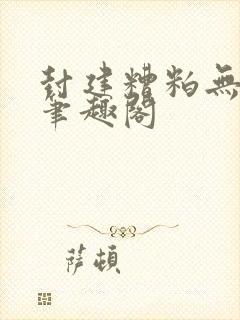 封建糟粕無
筆趣閣
萨頓